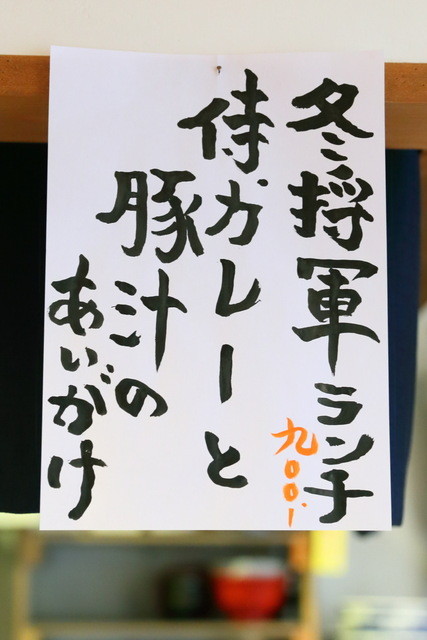 冬将軍ランチ
九〇〇、
侍カレーと
豚汁の
あいがけ